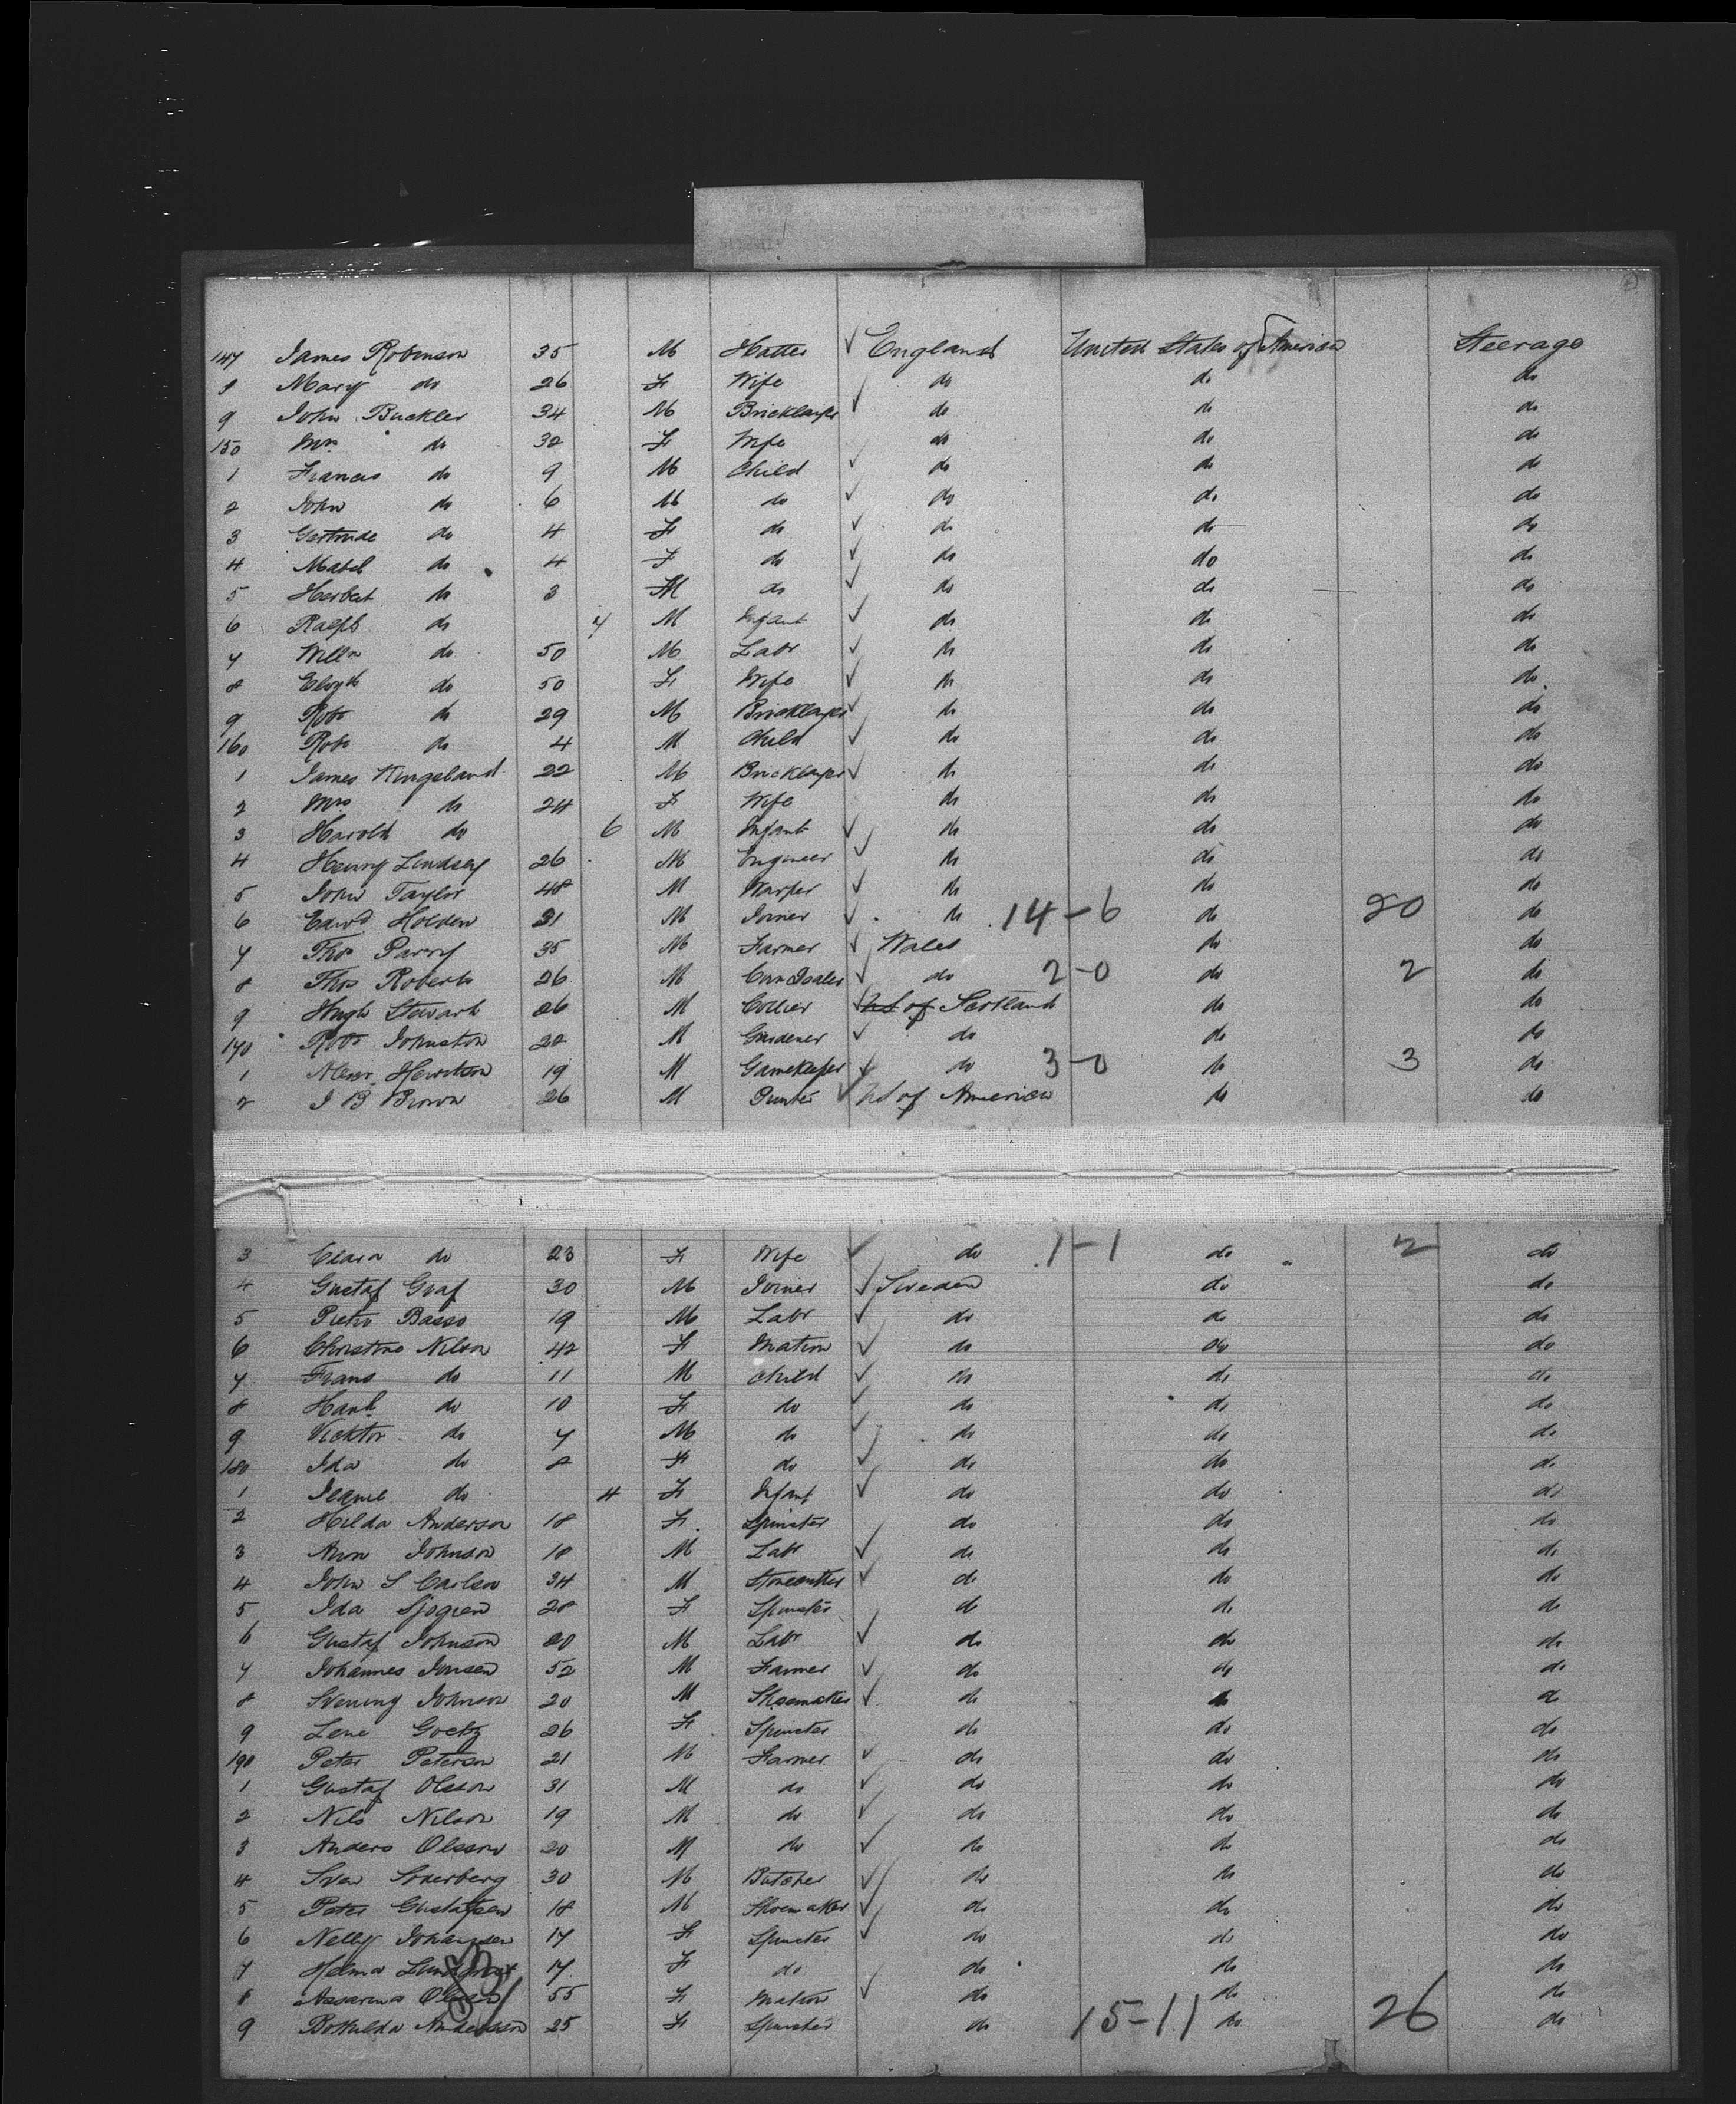 147 James Robinson 35 M Hatter ✓ England United States of America Steerage
8 Mary do 26 F Wife ✓ do do do
9 John Buckler 34 M Bricklayer ✓ do do do
150 Mrs do 32 F Wife do do do
1 Francis do 9 M Child ✓ do do do
2 John do 6 M do ✓ do do do
3 Gertrude do 4 F do ✓ do do do
4 Mabel do 4 F do ✓ do do do
5 Herbert do 3 M do ✓ do do do
6 Ralph do 7 M Infant ✓ do do do
7 Willm do 50 M Labr ✓ do do do
8 Elizth do 50 F Wife ✓ do do do
9 Robt do 29 M Bricklayer ✓ do do do
160 Robt do 4 M Child ✓ do do do
1 James Kingsland 22 M Bricklayer ✓ do do do
2 Mrs do 24 F Wife do do do
3 Harold do 6 M Infant ✓ do do do
4 Henry Lindsey 26 M Engineer ✓ do do do
5 John Taylor 48 M Warper ✓ do do do
6 Edwd Holden 31 M Joiner ✓ do 14-6 do 20 do
7 Thos Parry 35 M Farmer ✓ Wales do do
8 Thos Roberts 26 M ✓ do 2-0 do 2 do
9 Hugh Stewart 26 M Collier ✓ US of Scotland do do
170 Robt Johnston 28 M Gardener ✓ do do do
1 Alexr. Hewitson 19 M Gamekeeper ✓ do 3-0 do 3 do
2 J B Brown 26 M Printer ✓ US of America do do
3 Clara do 23 F Wife ✓ do 1-1 do 2 do
4 Gustaf Graf 30 M Joiner ✓ Sweden do do
5 Pietro Basso 19 M Labr ✓ do do do
6 Christine Nilson 42 F Matron ✓ do do do
7 Frans do 11 M child ✓ do do do
8 Hanh do 10 F do ✓ do do do
9 Vicktor do 7 M do ✓ do do do
180 Ida do 8 F do ✓ do do do
1 do 4 F Infant ✓ do do do
2 Hilda Anderson 18 F Spinster do do do
3 Aron Johnson 18 M Labr ✓ do do do
4 John S Carlson 34 M Stonecutter ✓ do do do
5 Ida Sjogren 28 F Spinster do do do
6 Gustaf Johnson 20 M Labr ✓ do do do
7 Johannes Jonsen 52 M Farmer ✓ do do do
8 Svening Johnson 20 M Shoemaker ✓ do do do
9 Lene Goetz 26 F Spinster do do do
190 Peter Peterson 21 M Farmer ✓ do do do
1 Gustaf Olsson 31 M do ✓ do do do
2 Nils Nilson 19 M do ✓ do do do
3 Anders Olsson 20 M do ✓ do do do
4 Sven Soderberg 30 M Butcher ✓ do do do
5 Peter Gustafsen 18 M Shoemaker ✓ do do do
6 Nelly Johansen 17 F Spinster ✓ do do do
7 Helma 17 F do do do do
8 Olsson 55 F Matron ✓ do do do
9 Bothilda Anderson 25 F Spinster do 15-11 do 26 do